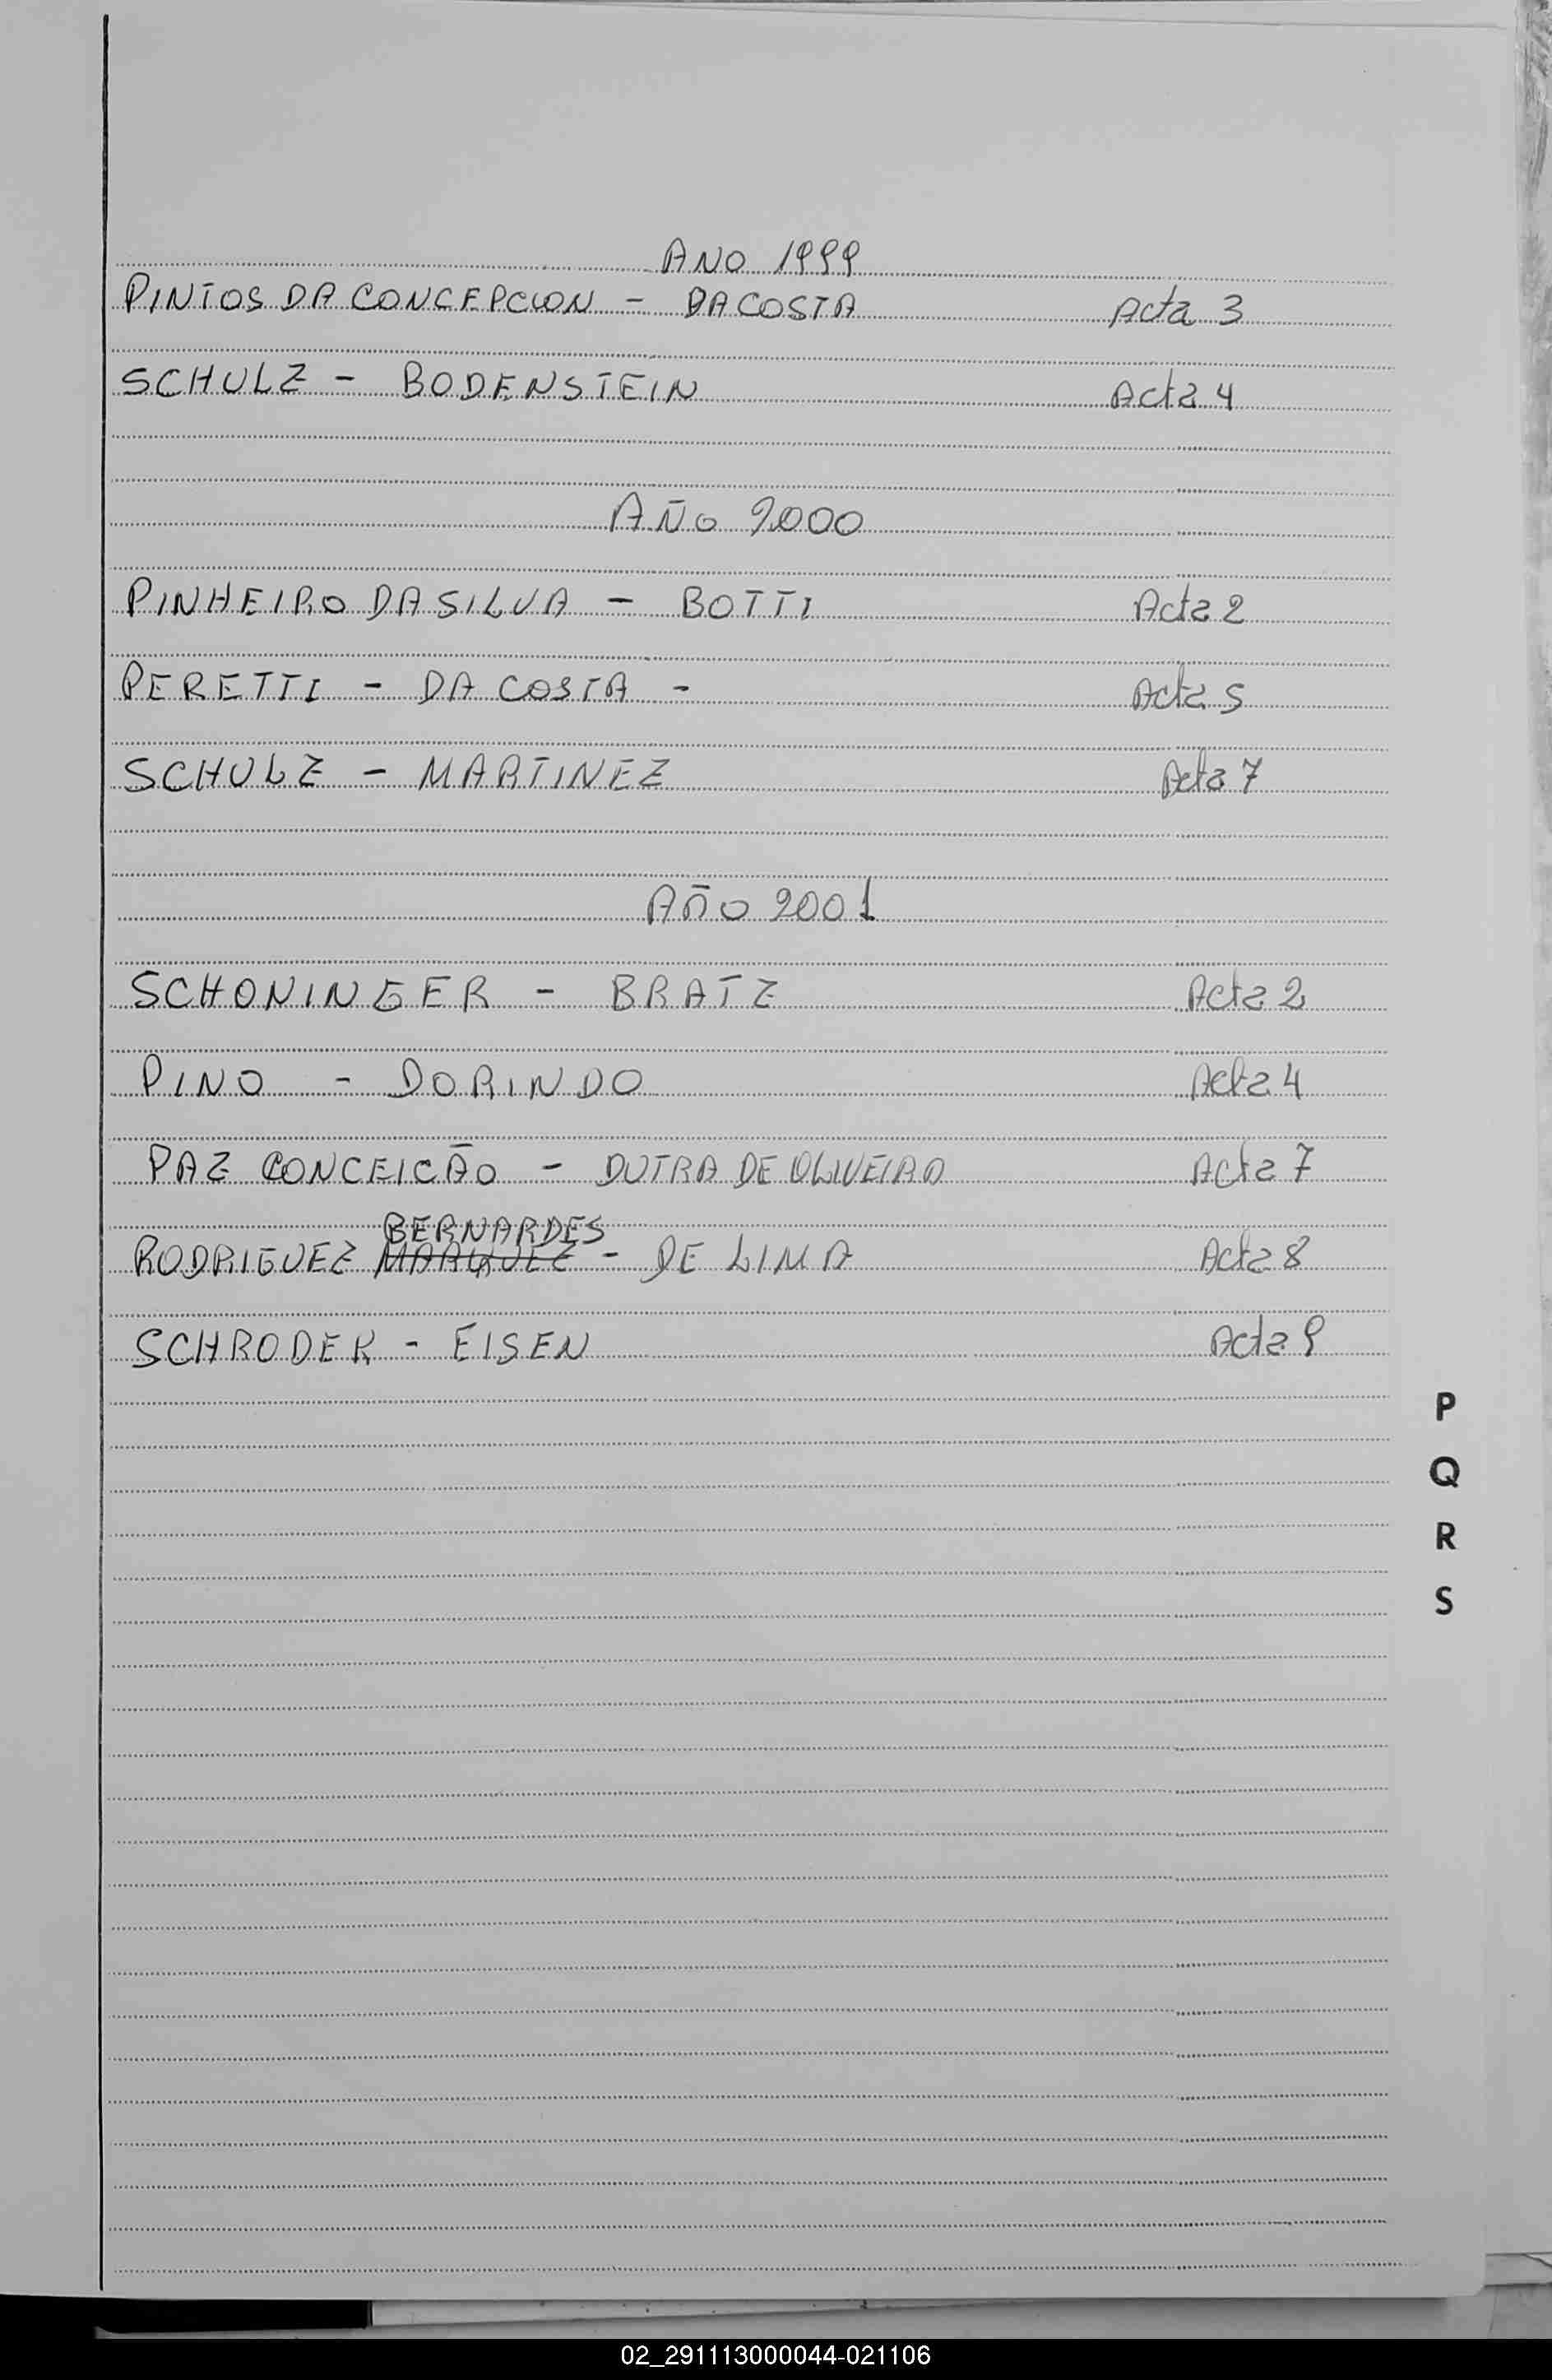 ANO 1999
PINTOS DA CONCEPCION - DACOSTA Acta 3
SCHULZ - BODENSTEIN Acta 4
AÑO 2000
PINHEIRO DA SILVA - BOTTI Acta 2
PERETTI - DA COSTA - Acta 5
SCHULZ - MARTINEZ Acta 7
AÑO 2001
SCHONINGER - BRATZ Acta 2
PINO - DORINDO Acta 4
PAZ CONCEICÃO - DUTRA DE OLIVEIRA Acta 7
BERNARDES
RODRIGUEZ MARQUEZ - DE LIMA Acta 8
SCHRODER - EISEN Acta 9
P
Q
R
S
02_291113000044-021106